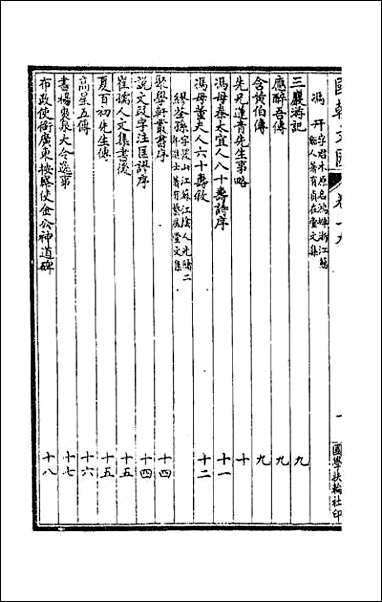 國朝文匯 卷一九
一
國學扶輪社印
馮开 字君木原名鴻墀浙江慈谿人著有貞在堂文集
三巖游記 九
應醉吾傳 九
含黃伯傳 九
先兄蓮青先生事略 十
馮母秦太宜人八十壽詩序 十一
馮母黃夫人六十壽敘 十二
繆荃孫 字筱山江蘇江陰人光緒二年進士著有藝風堂文集
聚學軒叢書序 十四
說文段字注匡謬序 十四
崔孺人文集書後 十五
夏百初先生傳 十五
高星五傳 十六
書楊襲泉大令逸事 十七
布政使銜廣東按察使金公神道碑 十八